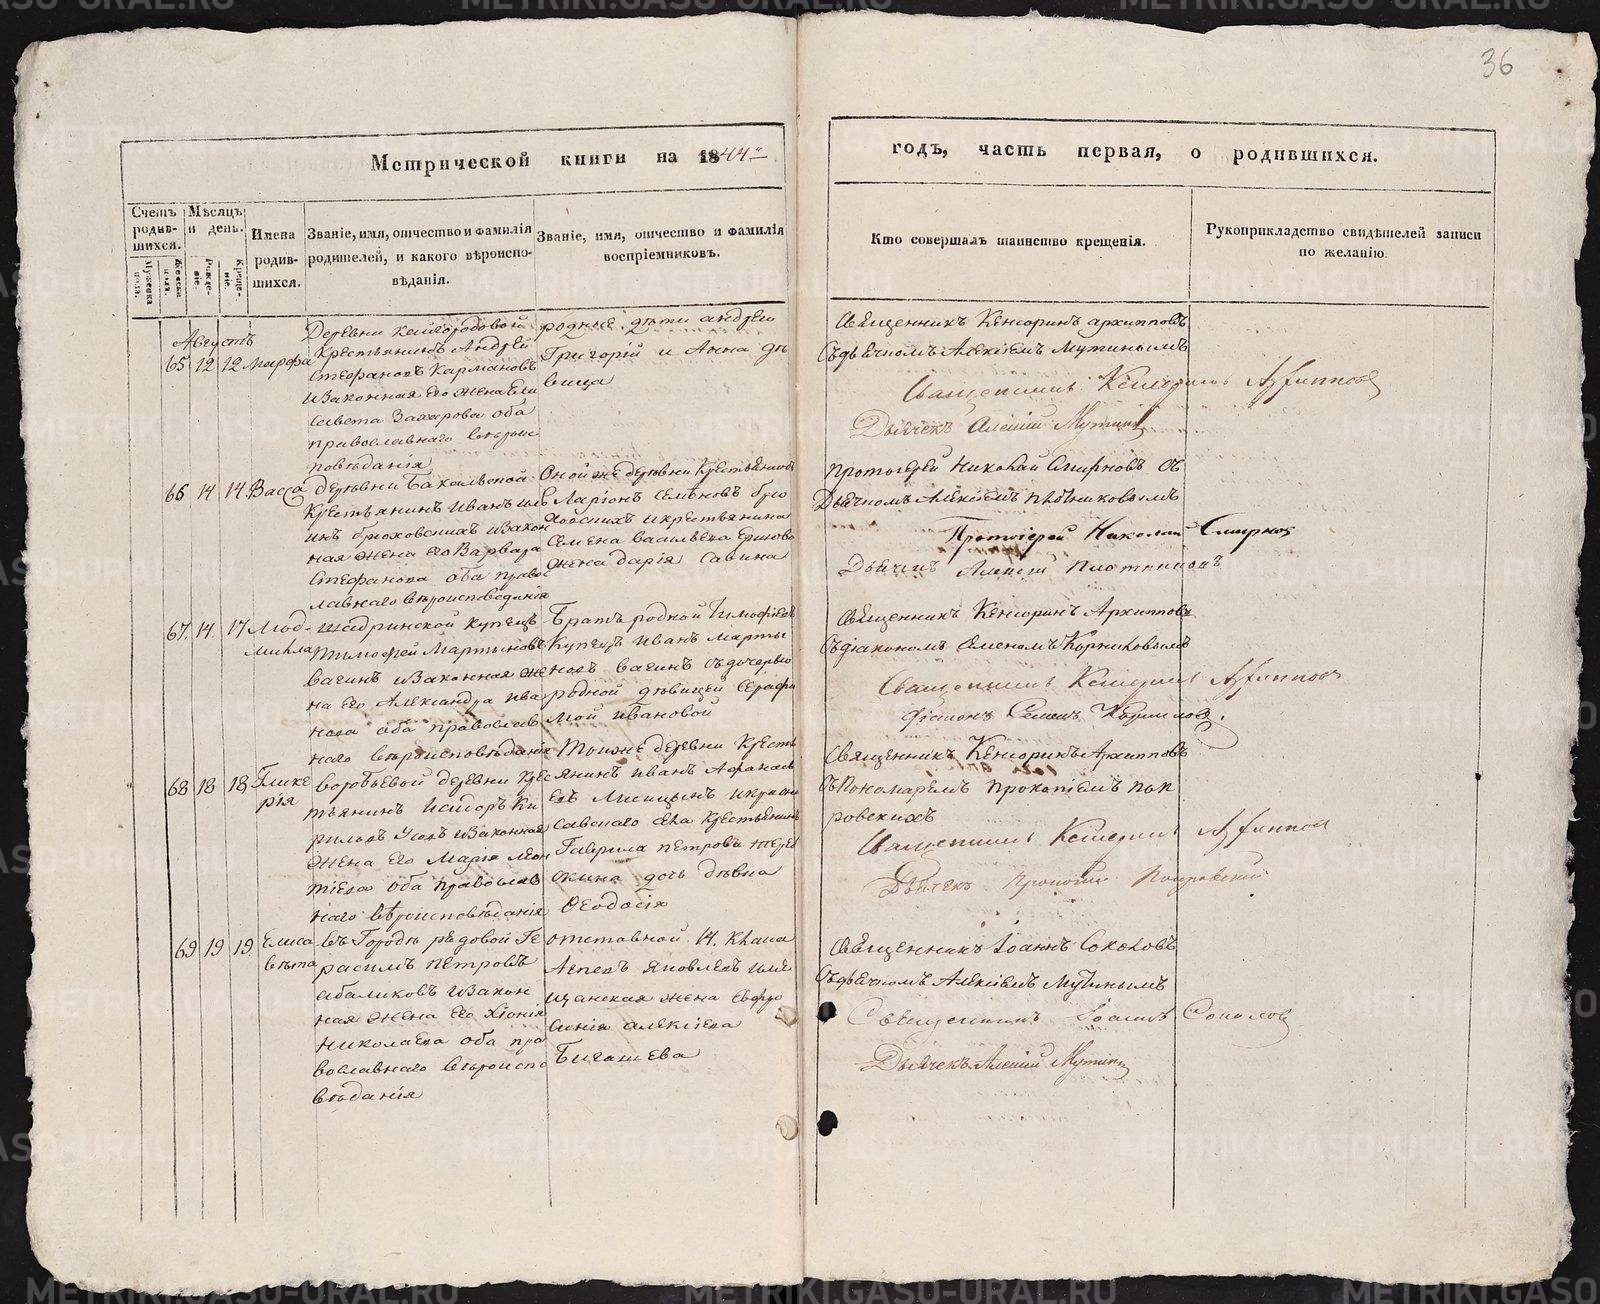 36
Метрической книги на 1844й
годъ, часть первая, о родившихся.
Счетъ родив-шихся.
Мужеска пола.
Женска пола.
Мѣсяцъ и день.
Рожде-ніе.
Креще-ніе.
Имена родив-шихся.
Званіе, имя, отчество и фамилія
родителей, и какого вѣроиспо-
вѣданія.
Званіе, имя, отчество и фамилія
воспріемниковъ.
Кто совершалъ таинство крещенія.
Рукоприкладство свидѣтелей записи
по желанію.
Августъ
65 12 12 Марфа
Деревни
крестьянинъ Андрей
Стефановъ Кармановъ
и законная его жена Ели
савета Захарова оба
православнаго вѣроис
повѣданія
родные дѣти Андрею
Григорій и Анна дѣ
вица
Священникъ Кенсоринъ Архипповъ
съ дьячкомъ Алексіемъ Мутинымъ
Священникъ Кенсоринъ Архипповъ
Дьячекъ Алексій Мутинъ
66 14 14 Васса
деревни
крестьянинъ Иванъ
и закон
ная жена его Варвара
Стефанова оба право
лавнаго вѣроисповеданія
Оной же деревни крестьянинъ
Ларіонъ Семеновъ Брю
ховскихъ и крестьянина
Семена Васильева Ершова
жена Дарія Савина
Протоіерей Николай Смирновъ съ
Дьячкомъ Алексіемъ Плотниковымъ
Протоіерей Николай Смирнов
Дьячекъ Алексій Плотниковъ
67. 14. 17 Люд-
мила
Шадринской купецъ
Тимофей Мартыновъ
Вагинъ и законная же
на его Александра Ива
нова оба православ
наго вѣроисповѣданія
Братъ родной Тимофеевъ
Купецъ Иванъ Марты
новъ Вагинъ съ дочерью
родной дѣвицей Серафи
мой Ивановой
Священникъ Кенсоринъ Архипповъ
съ діакономъ
Священникъ Кенсоринъ Архипповъ
діаконъ
68 18 18 Глике
рія
Воробьевой деревни крес
тьянинъ Исидоръ Ки
риловъ Усовъ и законная
жена его Марія Леон
тіева оба православ
наго вѣроисповѣданія
Тоиже деревни кресть
янинъ Иванъ Афанась
евъ
славскаго села крестьянина
Гаврила Петрова
дочь дѣвка
Феодосія
Священникъ Кенсоринъ Архипповъ
съ Пономаремъ Прокопіемъ Пок
ровскихъ
Священникъ Кенсоринъ Архиппов
Дьячекъ Прокопій Покровскій
69 19 19. Елиса
вѣта
въ Городѣ рядовой Ге
расимъ Петровъ
и закон
ная жена его Хіонія
Николаева оба пра
вославнаго вѣроиспо
вѣданія
отставной
Яковлевъ и мѣ
щанская жена Евфро
синія Алексіева
Бигашева
Священникъ Іоаннъ Соколовъ
съ дьячкомъ Алексіемъ Мутинымъ
Священникъ Іоаннъ Соколов
Дьячекъ Алексій Мутинъ
METRIKI.GASO-URAL.RU